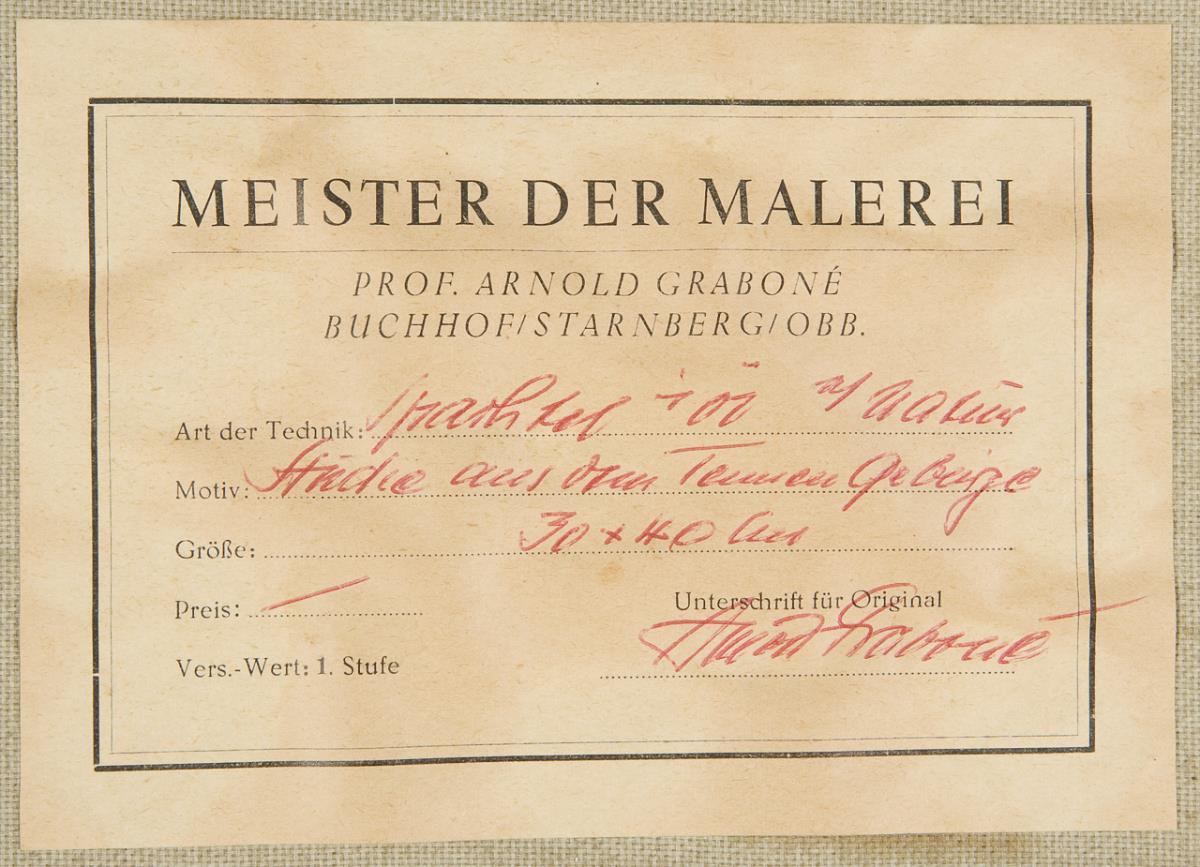 MEISTER DER MALEREI
PROF. ARNOLD GRABONÉ
BUCHHOF/STARNBERG/OBB.
Art der Technik: Spachtel i Öl n/ Natur
Motiv: Stücke aus dem Tennen Gebirge
Größe: 30 x 40 cm
Preis: —
Unterschrift für Original
Arnold Graboné
Vers.-Wert: 1. Stufe